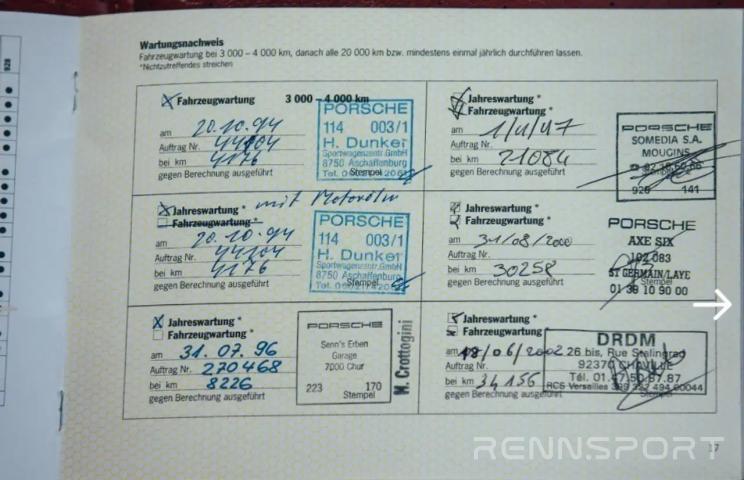 Wartungsnachweis
Fahrzeugwartung bei 3 000 – 4 000 km, danach alle 20 000 km bzw. mindestens einmal jährlich durchführen lassen.
*Nichtzutreffendes streichen
928
Fahrzeugwartung 3 000 – 4 000 km
am 20.10.94
Auftrag Nr. 44104
bei km 4176
gegen Berechnung ausgeführt
PORSCHE
114 003/1
H. Dunker
Sportwagenzentr. GmbH
8750 Aschaffenburg
Stempel
Jahreswartung *
Fahrzeugwartung *
am 1/4/97
Auftrag Nr.
bei km 21084
gegen Berechnung ausgeführt
PORSCHE
SOMEDIA S.A.
MOUGINS
141
Jahreswartung * mit Motorölw
Fahrzeugwartung *
am 20.10.94
Auftrag Nr. 44104
bei km 4176
gegen Berechnung ausgeführt
PORSCHE
114 003/1
H. Dunker
Sportwagenzentr. GmbH
8750 Aschaffenburg
Stempel
Jahreswartung *
Fahrzeugwartung *
am 31/08/2000
Auftrag Nr.
bei km 30258
gegen Berechnung ausgeführt
PORSCHE
AXE SIX
102 083
ST GERMAIN/LAYE
Stempel
01 39 10 90 00
Jahreswartung *
Fahrzeugwartung *
am 31.07.96
Auftrag Nr. 270468
bei km 8226
gegen Berechnung ausgeführt
PORSCHE
Senn's Erben
Garage
7000 Chur
223 170
Stempel
M. Crottogini
Jahreswartung *
Fahrzeugwartung *
am 18/06/2002
Auftrag Nr.
bei km 34156
gegen Berechnung ausgeführt
DRDM
26 bis, Rue Stalingrad
92370 CHAVILLE
RCS Versailles
Stempel
37
RENN.SPORT